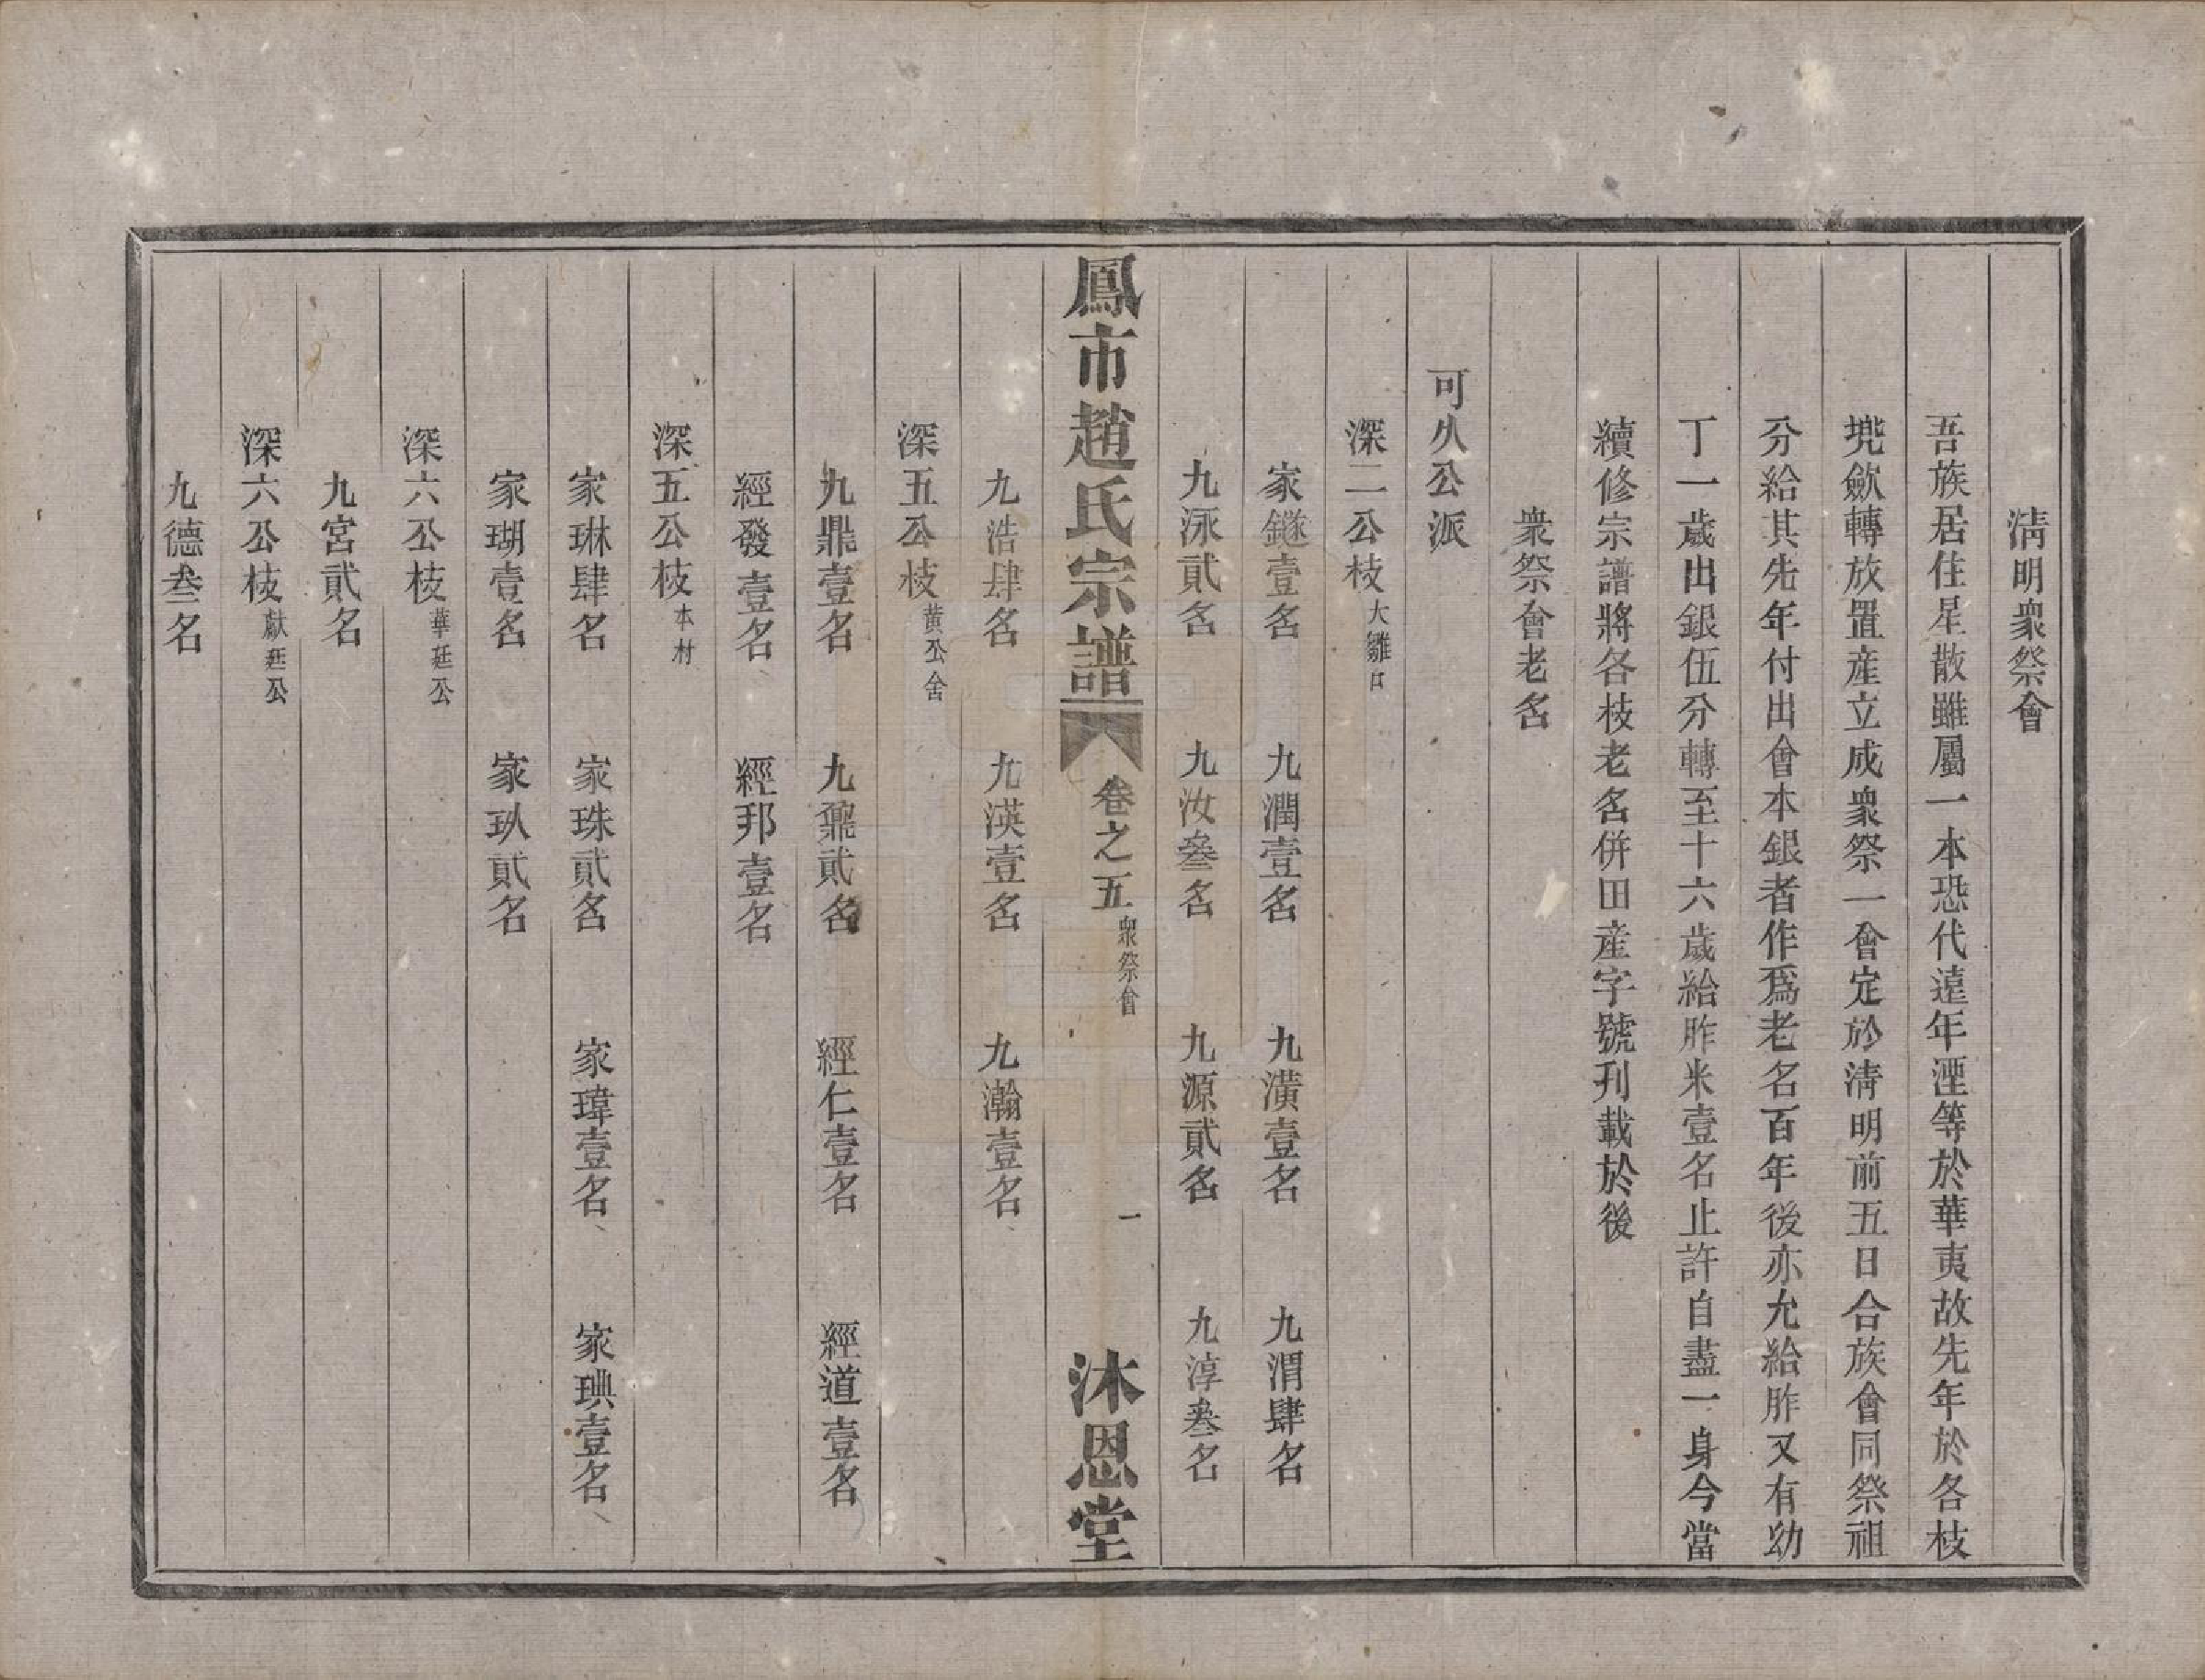 淸明衆祭會
吾族居住星散雖屬一本恐代遠年湮等於華夷故先年於各枝
兠歛轉放置産立成衆祭一會定於淸明前五日合族會同祭祖
分給其先年付出會本銀者作爲老名百年後亦允給胙又有幼
丁一歲出銀伍分轉至十六歲給胙米壹名止許自盡一身今當
續修宗譜將各枝老名併田産字號刋載於後
衆祭會老名
可久公派
深二公枝大雛口
家鐩壹名 九潤壹名 九潢壹名 九渭肆名
九泳貳名 九汝叄名 九源貳名 九淳叄名
鳳市趙氏宗譜 卷之五 衆祭會 一 沐恩堂
九浩肆名 九渶壹名 九瀚壹名
深五公枝黄公舍
九鼎壹名 九鼐貳名 經仁壹名 經道壹名
經發壹名 經邦壹名
深五公枝本村
家琳肆名 家珠貳名 家瑋壹名 家琠壹名
家瑚壹名 家玖貳名
深六公枝華廷公
九宮貳名
深六公枝獻廷公
九德叄名